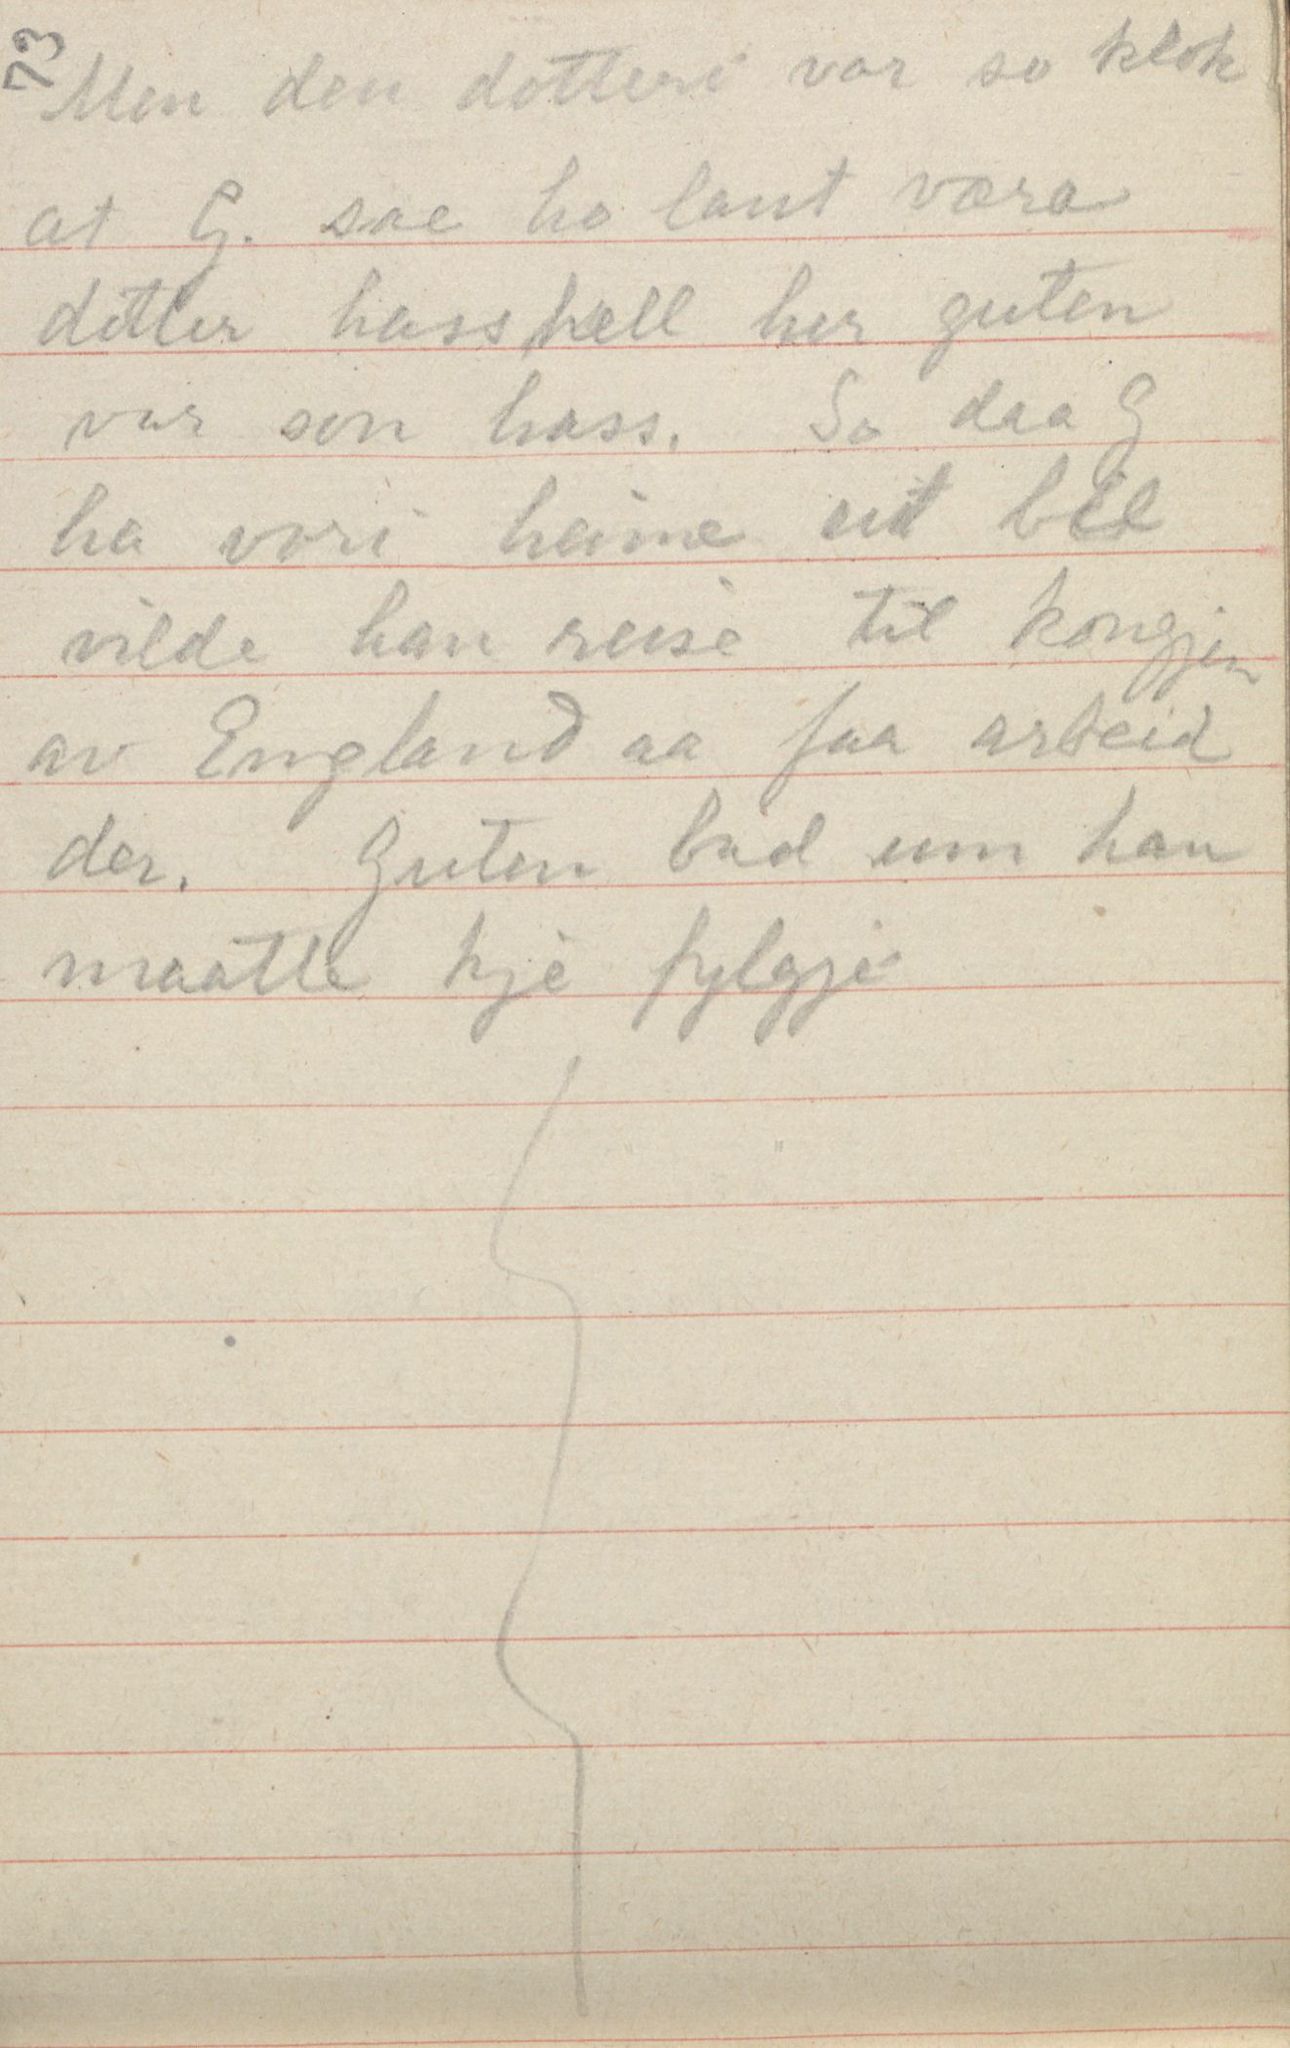 73
Men den dotteri var so klok
at G. sae ho laut væra
dotter hass hell her guten
var son hass. So daa G
ha vori heime eit bil
vilde han reise til kongjen
av England aa faa arbeid
der. Guten bad um han
maatte kje fylgje